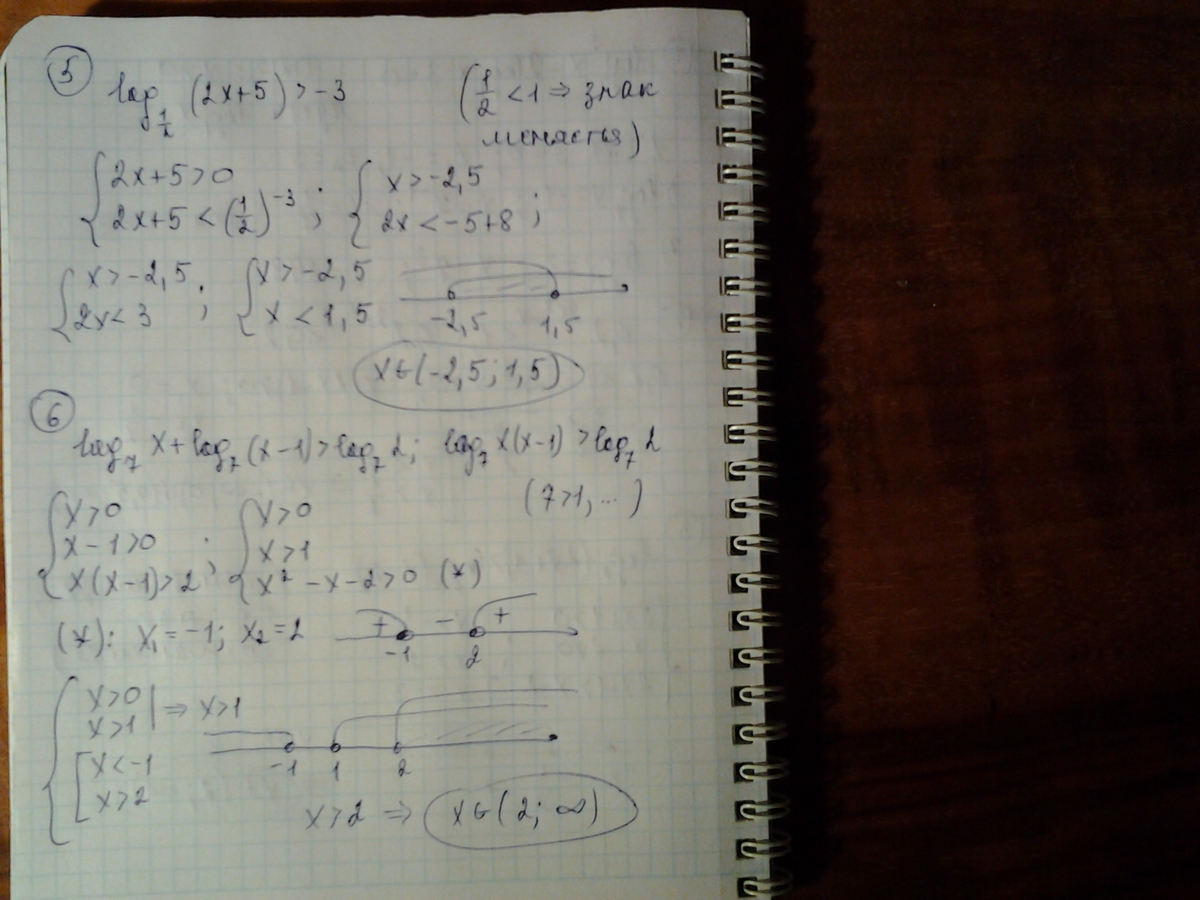 5
log_{1/2} (2x+5) > -3 (1/2 < 1 ⇒ знак
меняется)
{ 2x+5>0 ; { x > -2,5 ;
{ 2x+5 < (1/2)^{-3} { 2x < -5+8
{ x > -2,5 ; { x > -2,5
{ 2x < 3 { x < 1,5
-2,5 1,5
x∈(-2,5; 1,5)
6
log_7 x + log_7 (x-1) > log_7 2; log_7 x(x-1) > log_7 2
(7>1, ...)
{ x>0 ; { x>0
{ x-1>0 { x>1
{ x(x-1)>2 { x² - x - 2 > 0 (*)
(*): x₁ = -1; x₂ = 2 + - +
-1 2
{ x>0 | ⇒ x>1
{ x>1 |
[ x<-1 -1 1 2
[ x>2
x>2 ⇒ x∈(2; ∞)